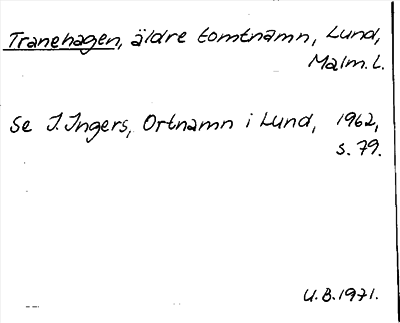 Tranehagen, äldre tomtnamn, Lund,
Malm. L.
Se I. Ingers, Ortnamn i Lund, 1962,
s. 79.
U.B. 1971.